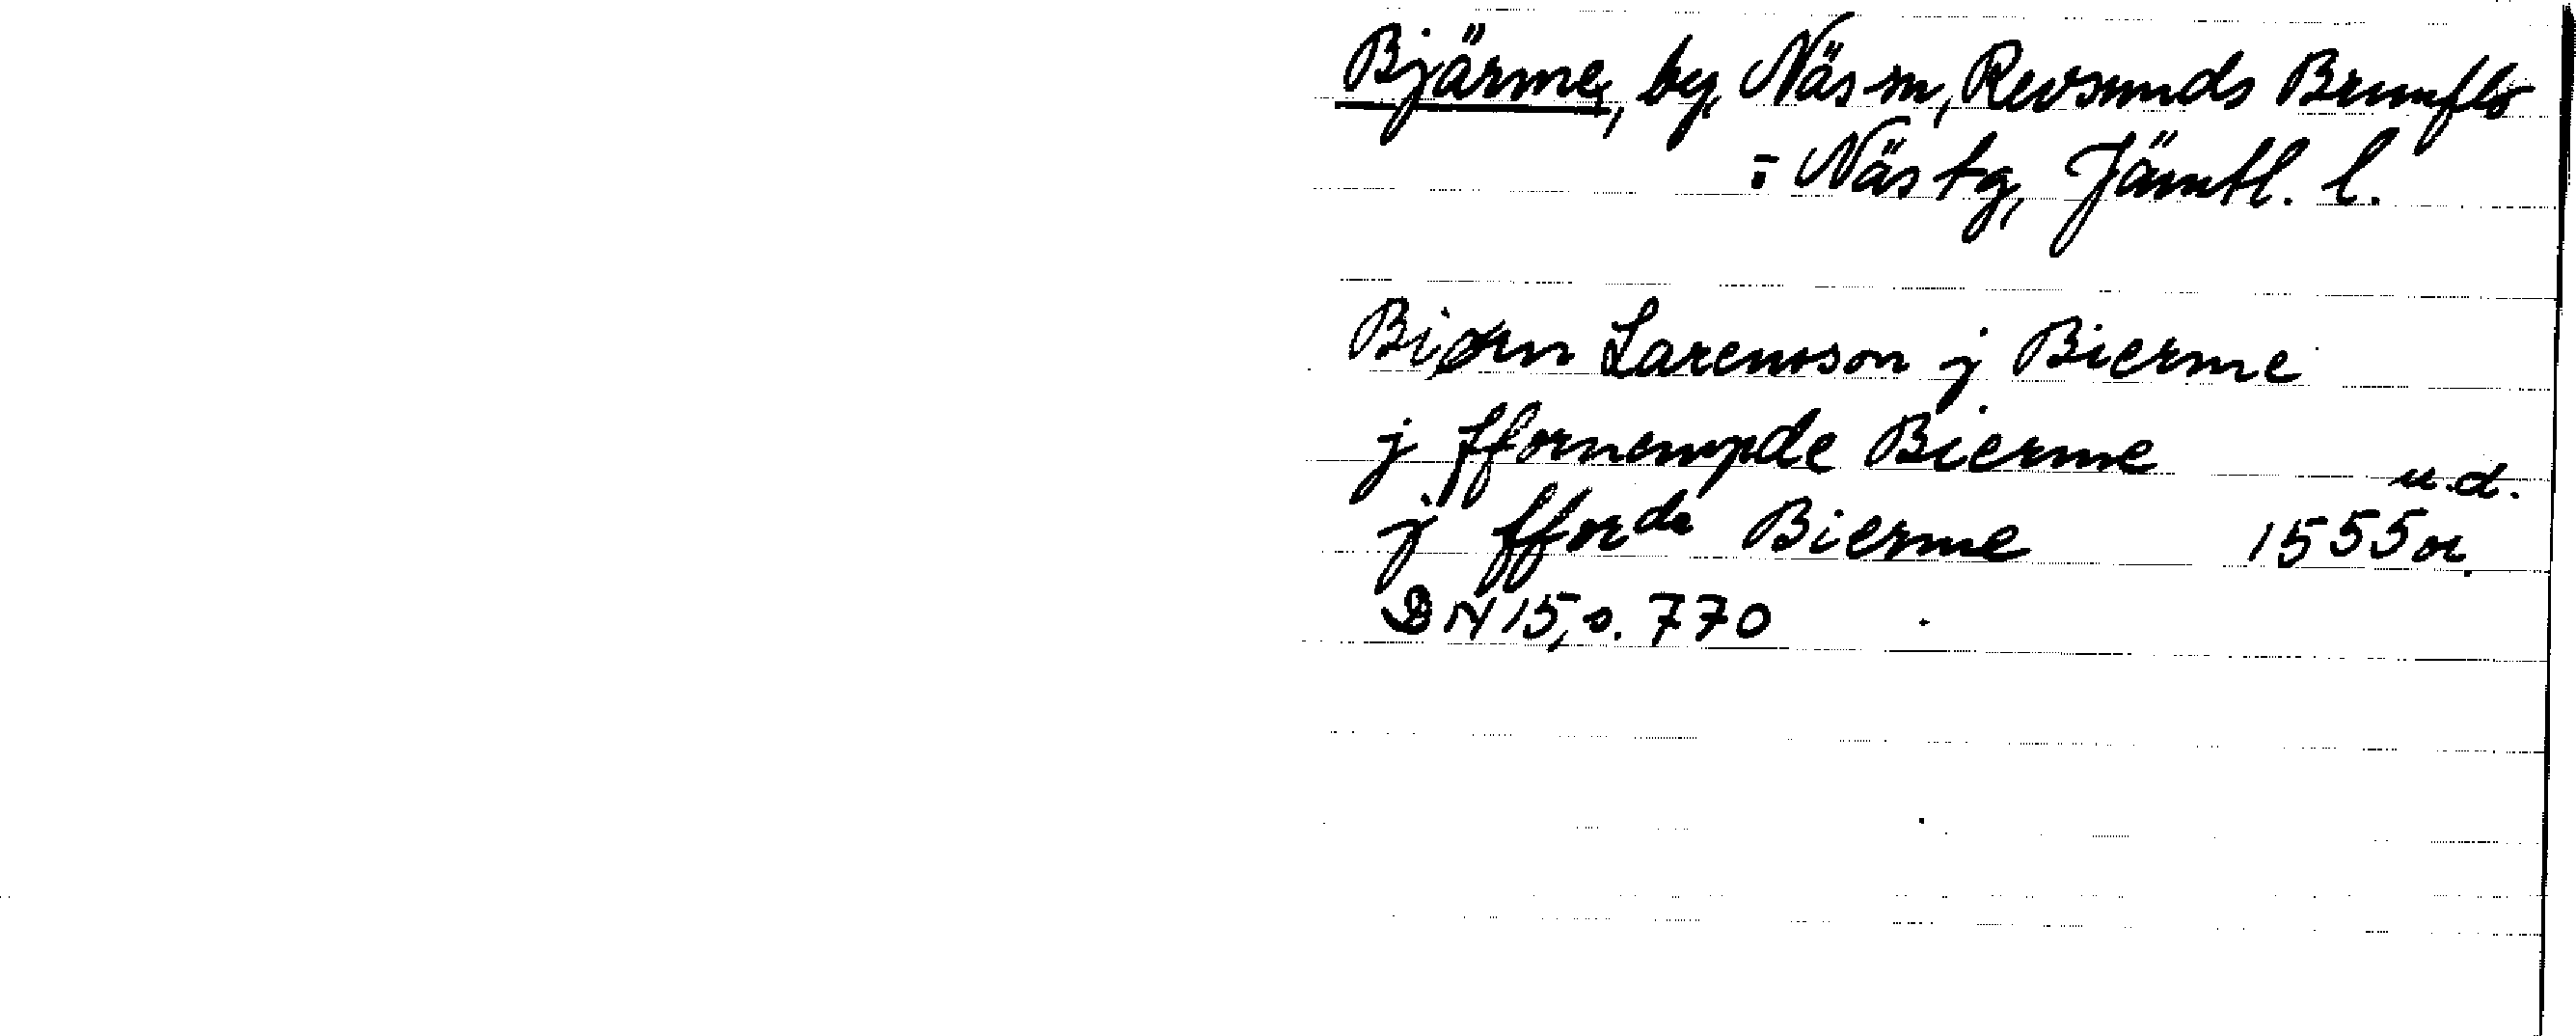 Bjärme, by, Näs sn, Revsunds Brunflo
= Näs tg, Jämtl. l.
Biørn Larensson j Bierme
j ffornempde Bierme
u.d.
j ffor de Bierme 1555 or.
DN 15, s. 770